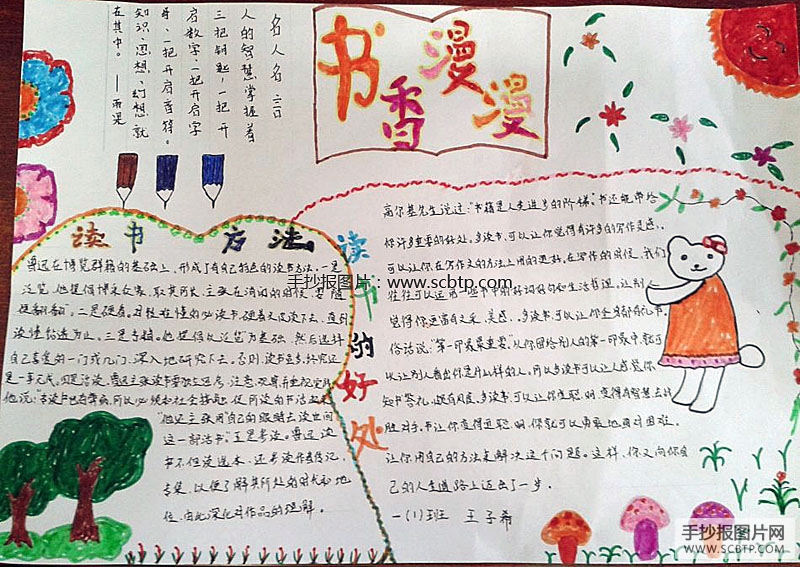 书香漫漫
名人名言
人的智慧掌握着
三把钥匙,一把开
启数字,一把开启字
母,一把开启音符。
知识、思想、幻想就
在其中。
——雨果
读书方法
鲁迅在博览群籍的基础上,形成了有自己特色的读书方法。一是
泛览。他提倡博采众家,取其所长,主张在消闲的时候,要"随
便翻翻"。二是硬看。对较难懂的必读书,硬着头皮读下去,直到
读懂钻透为止。三是专精。他提倡以"泛览"为基础,然后选择
自己喜爱的一门或几门,深入地研究下去。否则,读书虽多,终究还
是一事无成。四是活读。鲁迅主张读书要独立思考,注意观察并重视实践
他说:"专读书也有弊病,所以必须和社会接触,使所读的书活起来
"他还主张用"自己的眼睛去读世间
这一部活书"五是参读。鲁迅读
书不但读选本,还参读作者传记、
专集,以便了解其所处的时代和地
位,由此深化对作品的理解。
读书的好处
高尔基先生说过:"书籍是人类进步的阶梯。"书还能带给
你许多重要的好处。多读书,可以让你觉得有许多的写作灵感。
可以让你在写作文的方法上用的更好。在写作的时候,我们
往往可以运用一些书中的好词好句和生活哲理。让别人
觉得你更富有文采,美感。多读书,可以让你全身都有礼节。
俗话说:"第一印象最重要。"从你留给别人的第一印象中,就可
以让别人看出你是什么样的人。所以多读书可以让人感觉你
知书答礼,颇有风度。多读书,可以让你变聪明,变得有智慧去战
胜对手。书让你变得更聪明,你就可以勇敢地面对困难。
让你用自己的方法来解决这个问题。这样,你又向你自
己的人生道路上迈出了一步。
一(1)班 王子希
手抄报图片网:www.scbtp.com
手抄报图片网
WWW.SCBTP.COM